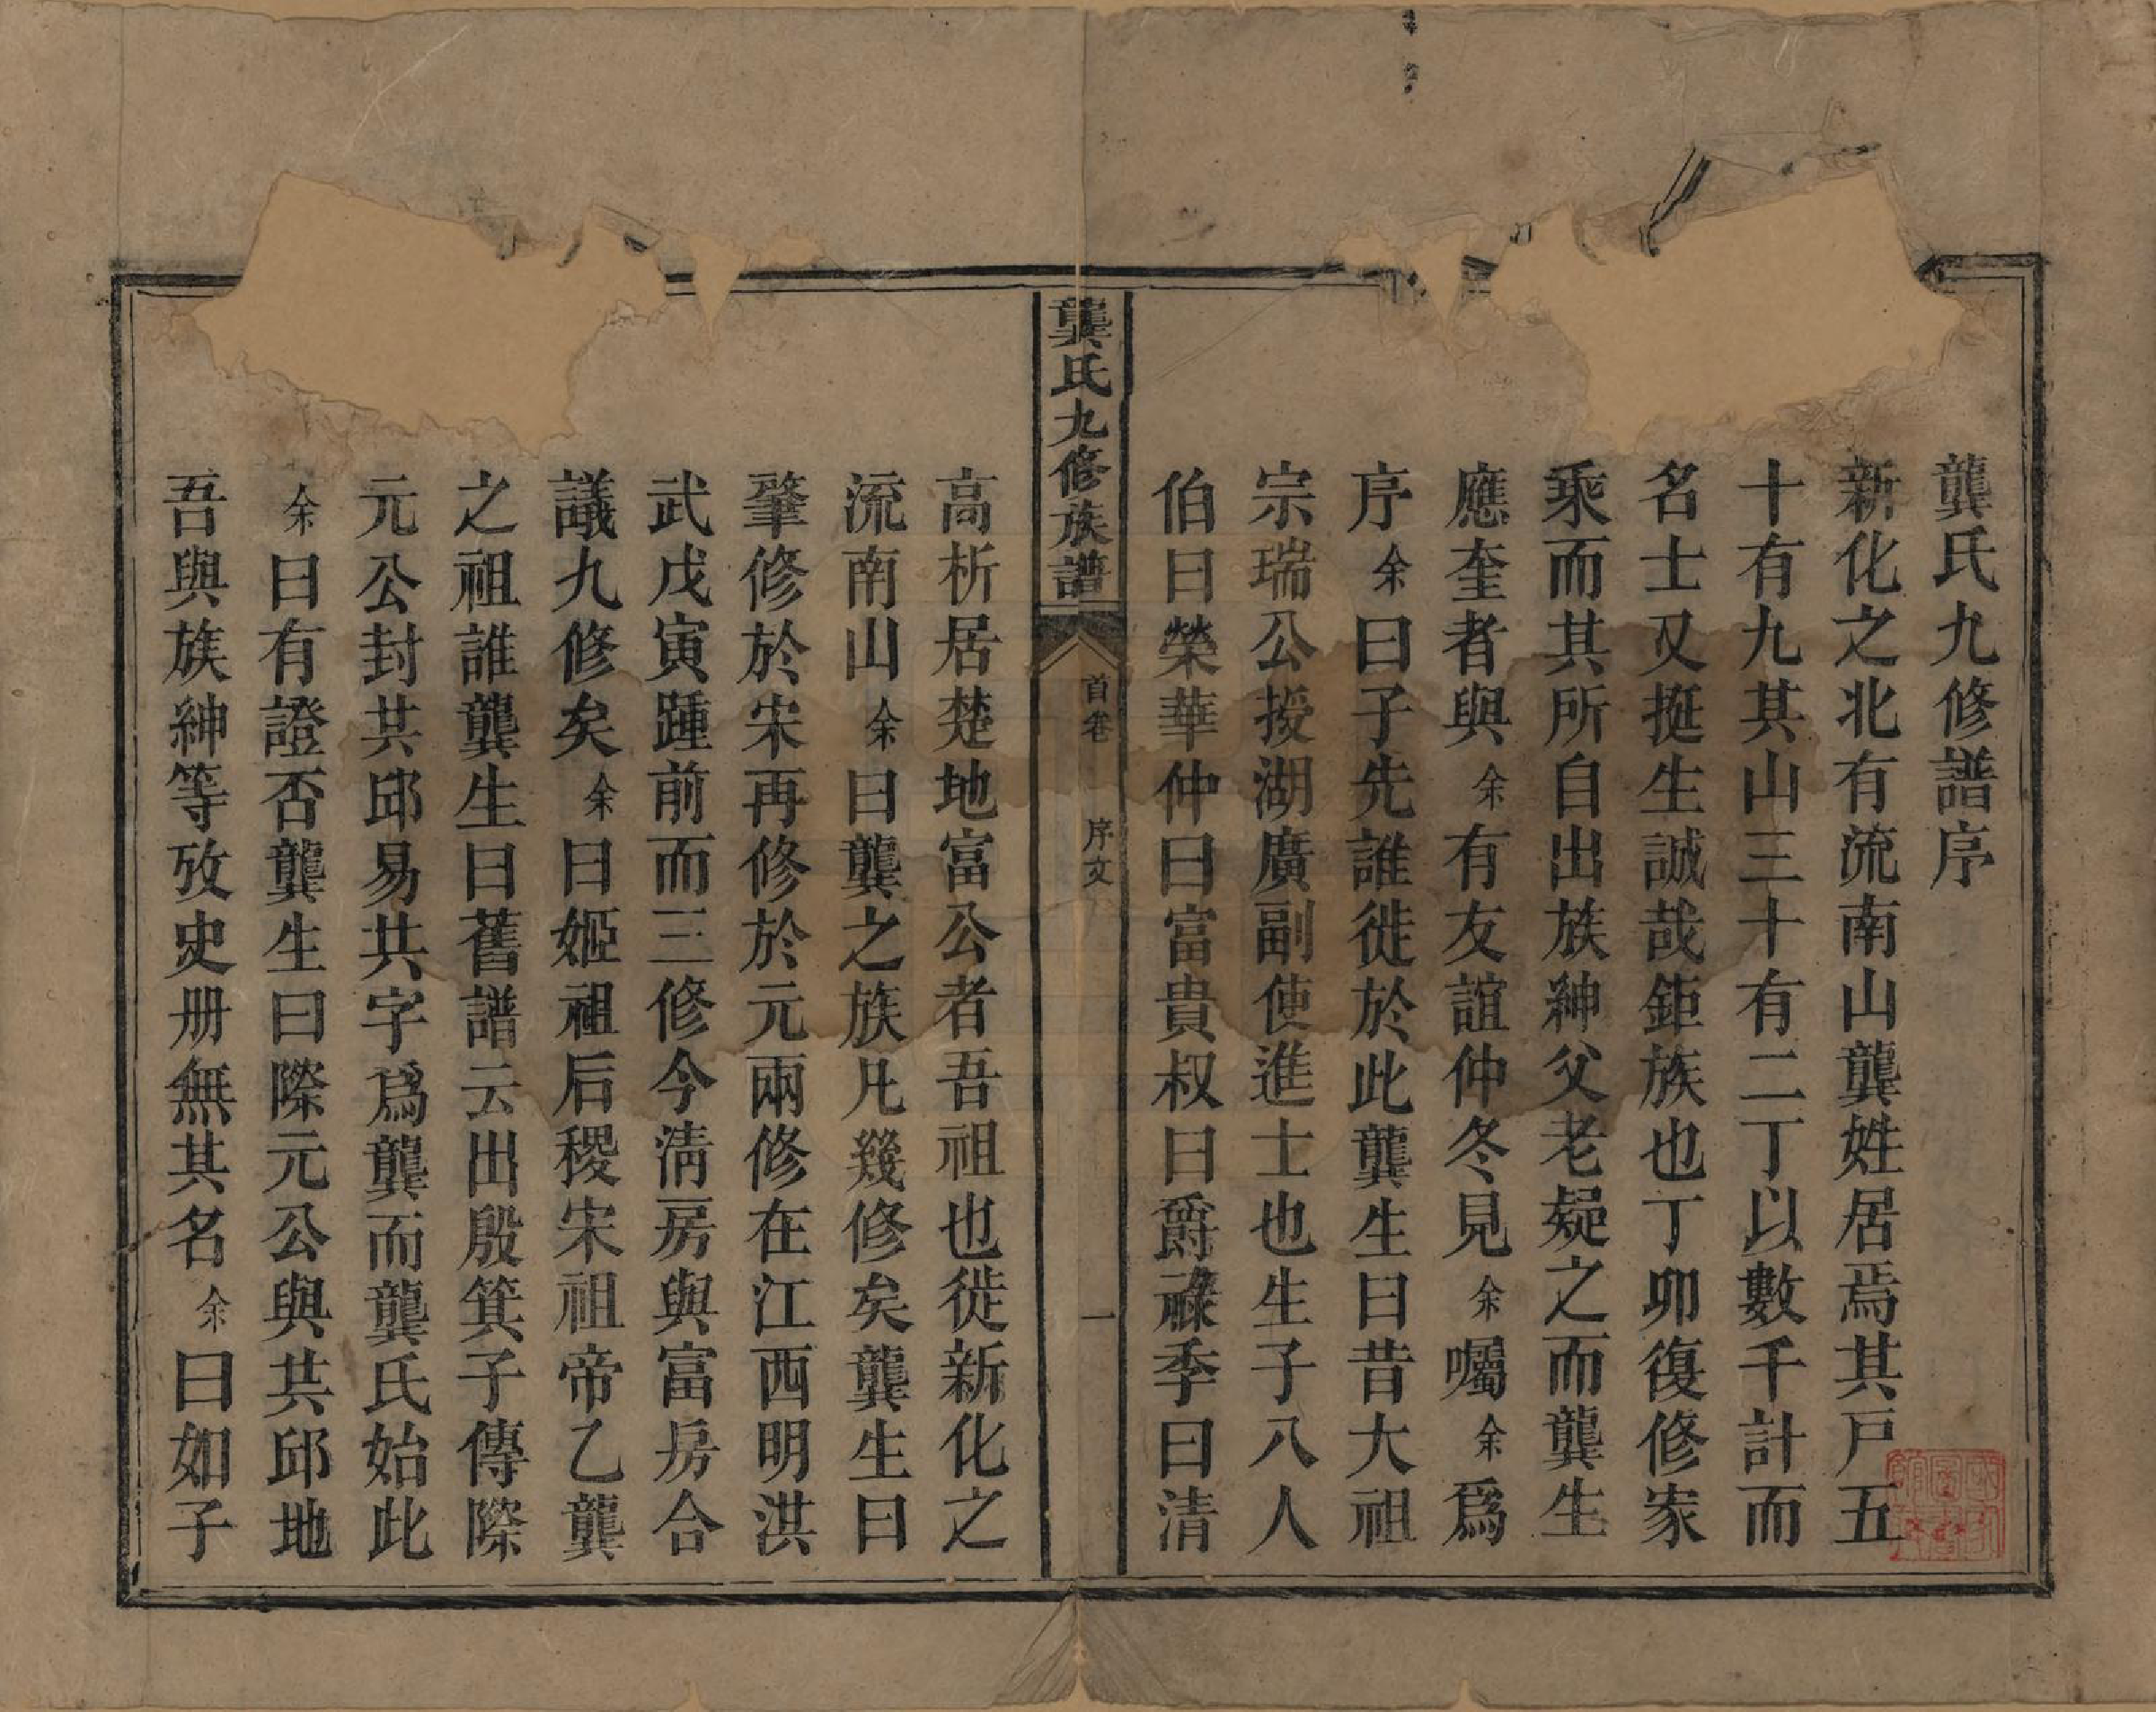 龔氏九修譜序
新化之北有流南山龔姓居焉其戸五
十有九其山三十有二丁以數千計而
名士又挺生誠哉鉅族也丁卯復修家
乘而其所自出族紳父老疑之而龔生
應奎者與余有友誼仲冬見余囑余爲
序余曰子先誰徙於此龔生曰昔大祖
宗瑞公授湖廣副使進士也生子八人
伯曰榮華仲曰富貴叔曰爵祿季曰清
龔氏九修族譜
首卷
序文
一
高析居楚地富公者吾祖也徙新化之
流南山余曰龔之族凡幾修矣龔生曰
肇修於宋再修於元兩修在江西明洪
武戊寅踵前而三修今清房與富房合
議九修矣余曰姬祖后稷宋祖帝乙龔
之祖誰龔生曰舊譜云出殷箕子傳際
元公封共邱易共字爲龔而龔氏始此
余曰有證否龔生曰際元公與共邱地
吾與族紳等攷史册無其名余曰如子